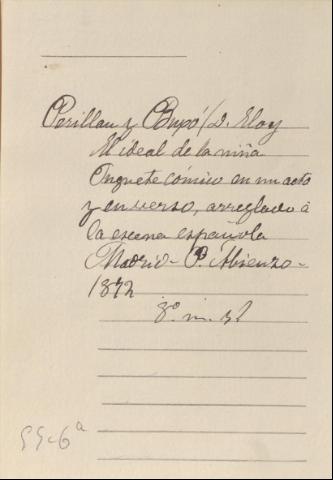 Perillan y Buxó (D. Eloy
El ideal de la niña
Juguete cómico en un acto
y en verso, arreglado á
la escena española
Madrid - P. Abienzo -
1872
8º m. 32
55-6ª